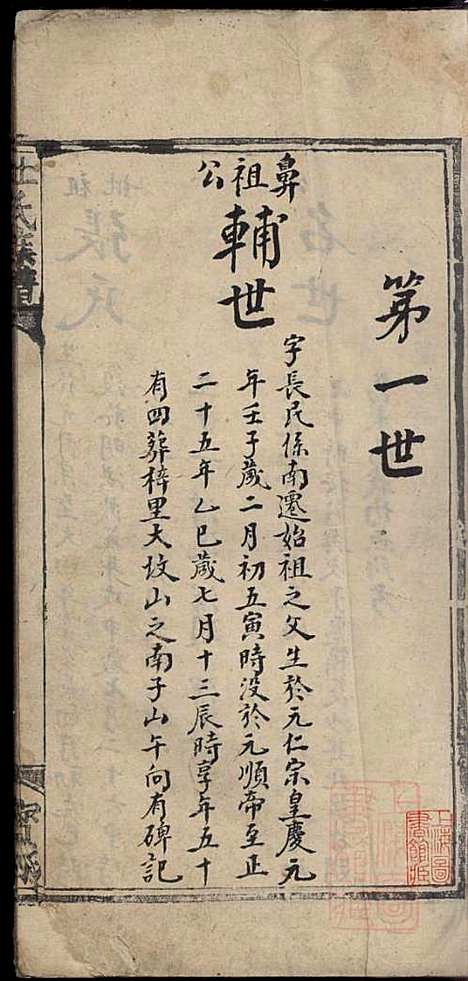 第一世
鼻祖公
輔世
字長民係南遷始祖之父生於元仁宗皇慶元
年壬子歲二月初五寅時没於元順帝至正
二十五年乙巳歲七月十三辰時享年五十
有四葬梓里大坟山之南子山午向有碑記
氏族譜
上海圖
書館藏